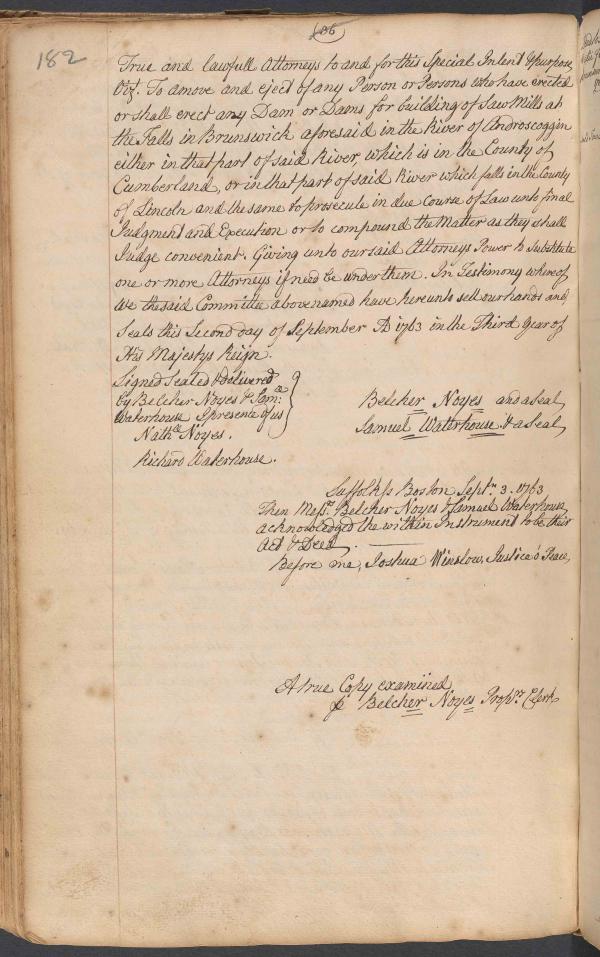 186
182
True and lawfull Attorneys to and for this Special Intent & purpose,
Viz. To amove and eject of any Person or Persons who have erected
or shall erect any Dam or Dams for building of Saw Mills at
the Falls in Brunswick aforesaid in the River of Androscoggin
either in that part of said River, which is in the County of
Cumberland, or in that part of said River which falls in the County
of Lincoln and the same to prosecute in due Course of Law unto final
Judgment and Execution or to compound the Matter as they shall
Judge convenient. Giving unto our said Attorneys Power to Substitute
one or more Attorneys if need be under them. In Testimony whereof
We the said Committee above named have hereunto sett our hands and
Seals this Second day of September AD 1763 in the Third Year of
His Majestys Reign.
Signed Sealed & delivered
by Belcher Noyes & Sam:
Waterhouse presence of us
Nath.ll Noyes.
Richard Waterhouse.
Belcher Noyes and a Seal
Samuel Waterhouse. & a Seal
Suffolk ss Boston Sept.r 3. 1763
Then Mess.rs Belcher Noyes & Samuel Waterhouse
acknowledged the within Instrument to be their
Act & Deed.
Before me, Joshua Winslow, Justice o Peace,
A true Copy examined
p Belcher Noyes Prop.rs Clerk